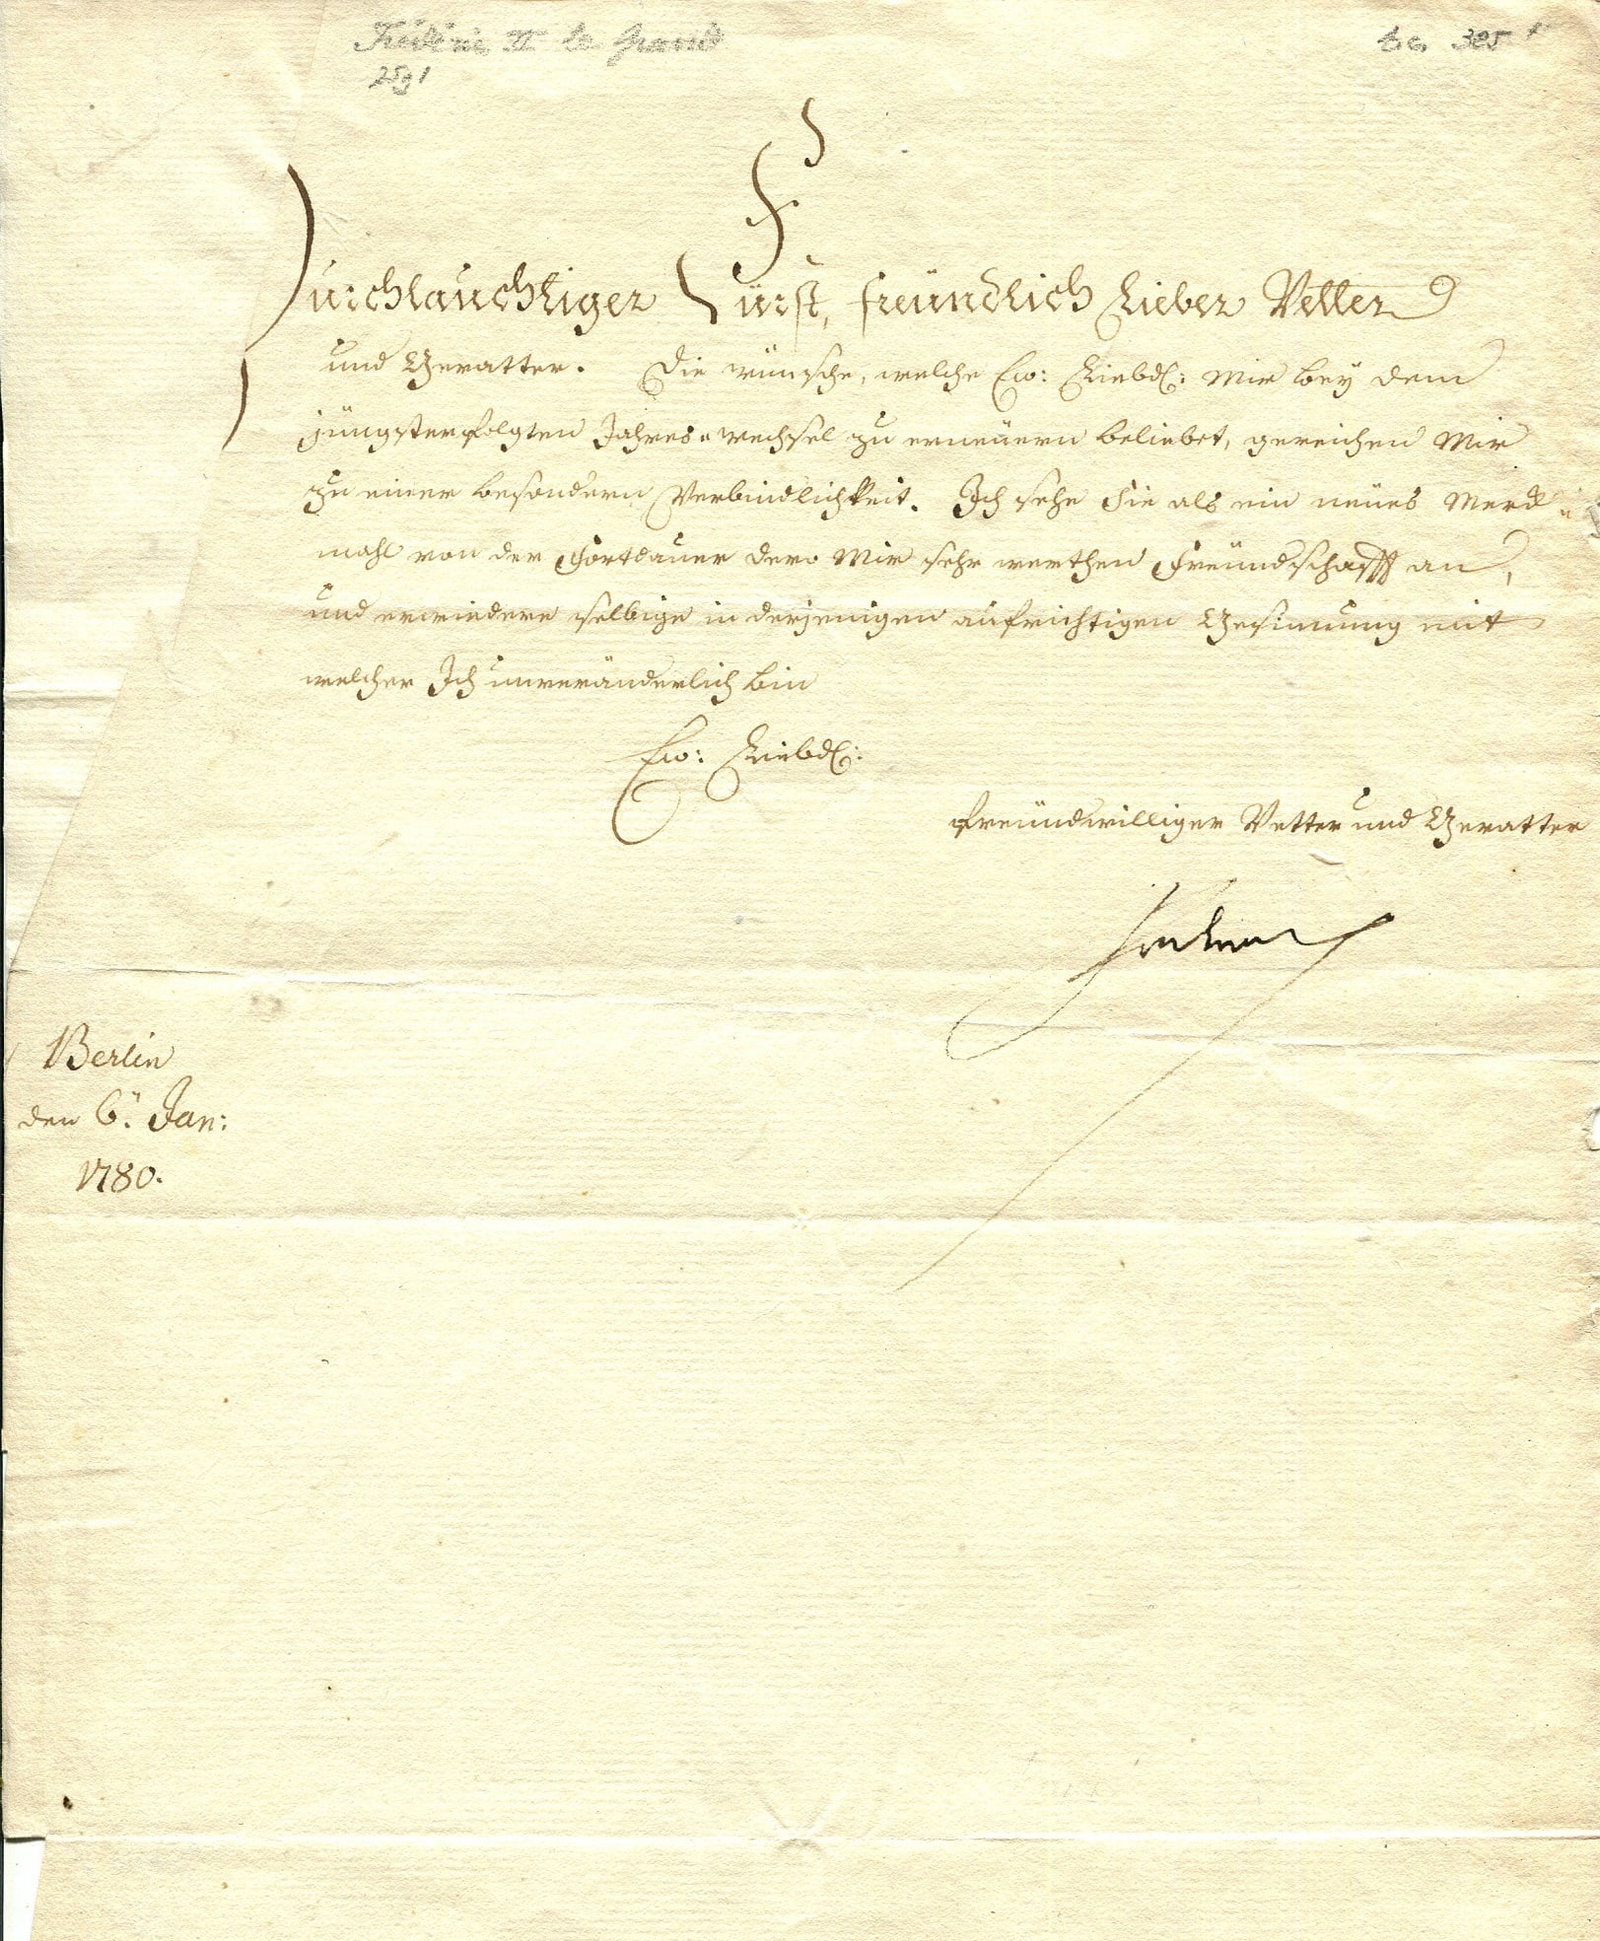 Frédéric II le Grand
2591
385
Durchlauchtiger Fürst, freündlich Lieber Vetter
und Gevatter. Die wünsche, welche Ew: Liebd: Mir bey dem
jüngsterfolgten Jahres-wechsel zu erneüern beliebet, gereichen Mir
zu einer besondern Verbindlichkeit. Ich sehe Sie als ein neües Merck-
mahl von der Fortdauer dero Mir sehr werthen Freündschafft an,
und erwiedere selbige in derjenigen aufrichtigen Gesinnung mit
welcher Ich unveränderlich bin
Ew: Liebd:
freündwilliger Vetter und Gevatter
Berlin
den 6.ⁿ Jan:
1780.